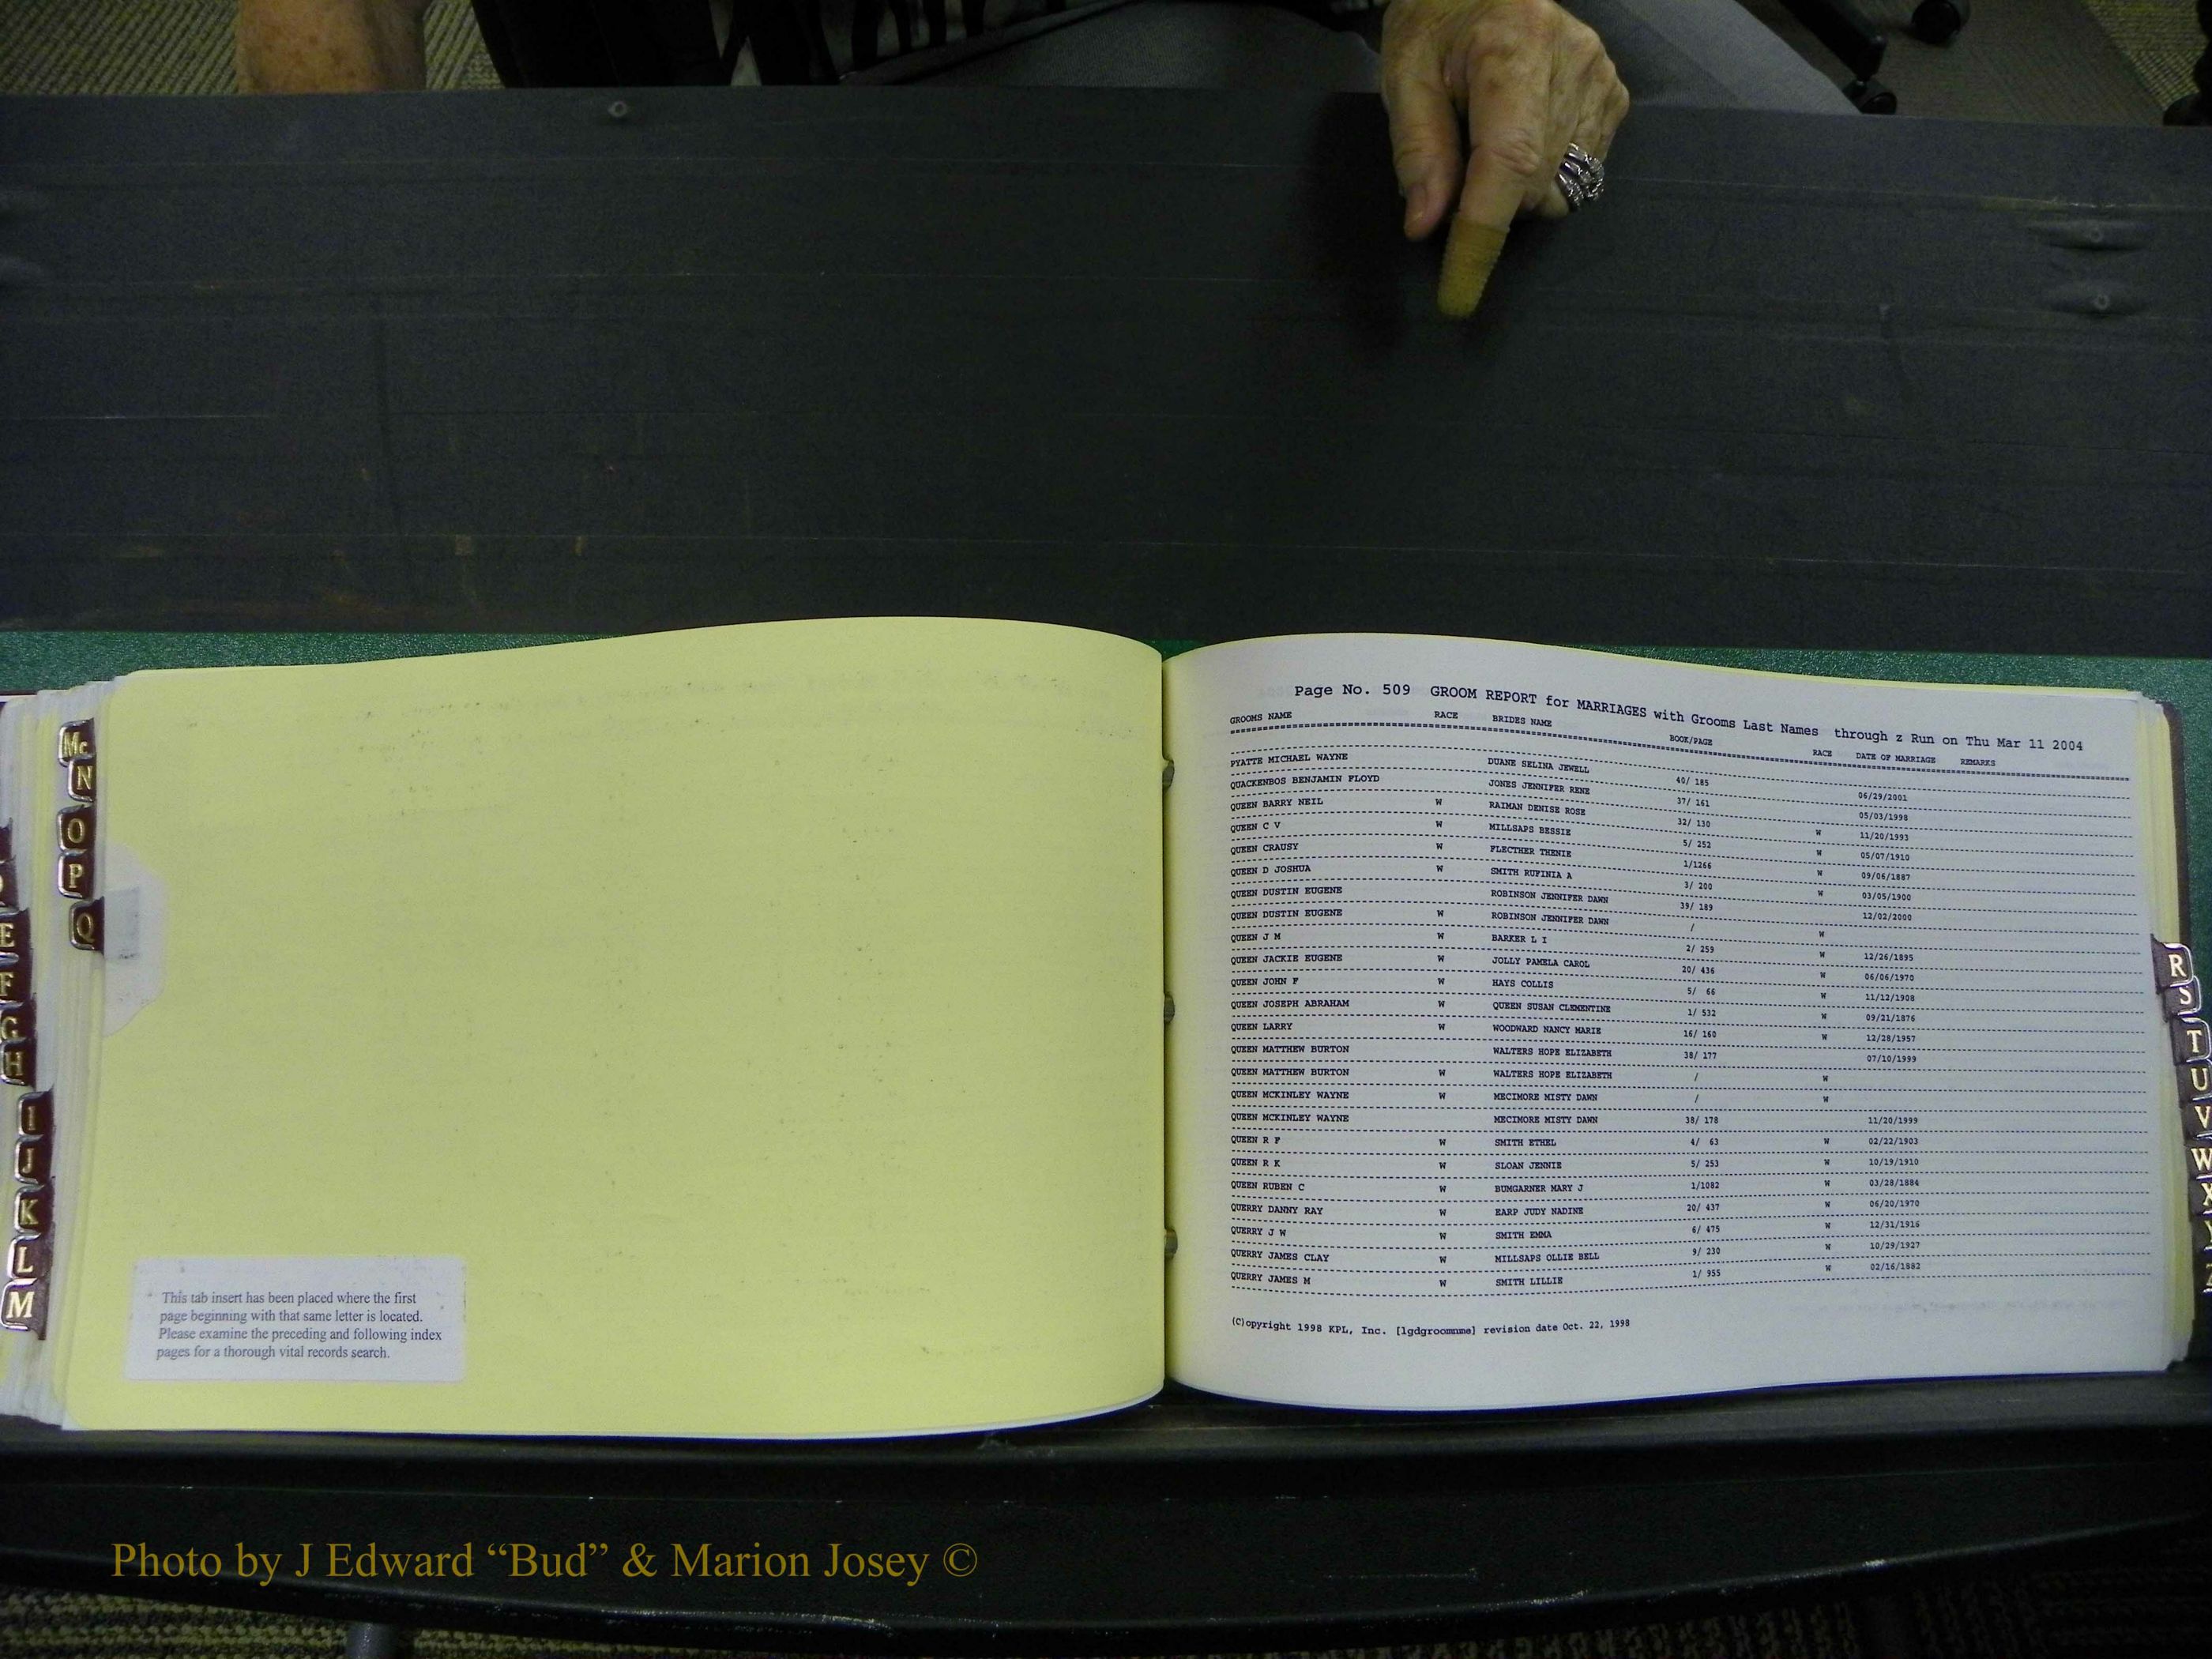 Mc
N
O
P
Q
E
F
G
H
I
J
K
L
M
This tab insert has been placed where the first
page beginning with that same letter is located.
Please examine the preceding and following index
pages for a thorough vital records search.
Page No. 509 GROOM REPORT for MARRIAGES with Grooms Last Names through z Run on Thu Mar 11 2004
GROOMS NAME RACE BRIDES NAME BOOK/PAGE RACE DATE OF MARRIAGE REMARKS
PYATTE MICHAEL WAYNE DUANE SELINA JEWELL 40/ 185 06/29/2001
QUACKENBOS BENJAMIN FLOYD JONES JENNIFER RENE 37/ 161 05/03/1998
QUEEN BARRY NEIL W RAIMAN DENISE ROSE 32/ 130 W 11/20/1993
QUEEN C V W MILLSAPS BESSIE 5/ 252 W 05/07/1910
QUEEN CRAUSY W FLECTHER THENIE 1/1266 W 09/06/1887
QUEEN D JOSHUA W SMITH RUFINIA A 3/ 200 W 03/05/1900
QUEEN DUSTIN EUGENE ROBINSON JENNIFER DAWN 39/ 189 12/02/2000
QUEEN DUSTIN EUGENE W ROBINSON JENNIFER DAWN / W
QUEEN J M W BARKER L I 2/ 259 W 12/26/1895
QUEEN JACKIE EUGENE W JOLLY PAMELA CAROL 20/ 436 W 06/06/1970
QUEEN JOHN F W HAYS COLLIS 5/ 66 W 11/12/1908
QUEEN JOSEPH ABRAHAM W QUEEN SUSAN CLEMENTINE 1/ 532 W 09/21/1876
QUEEN LARRY W WOODWARD NANCY MARIE 16/ 160 W 12/28/1957
QUEEN MATTHEW BURTON WALTERS HOPE ELIZABETH 38/ 177 07/10/1999
QUEEN MATTHEW BURTON W WALTERS HOPE ELIZABETH / W
QUEEN MCKINLEY WAYNE W MECIMORE MISTY DAWN / W
QUEEN MCKINLEY WAYNE MECIMORE MISTY DAWN 38/ 178 11/20/1999
QUEEN R F W SMITH ETHEL 4/ 63 W 02/22/1903
QUEEN R K W SLOAN JENNIE 5/ 253 W 10/19/1910
QUEEN RUBEN C W BUMGARNER MARY J 1/1082 W 03/28/1884
QUERRY DANNY RAY W EARP JUDY NADINE 20/ 437 W 06/20/1970
QUERRY J W W SMITH EMMA 6/ 475 W 12/31/1916
QUERRY JAMES CLAY W MILLSAPS OLLIE BELL 9/ 230 W 10/29/1927
QUERRY JAMES M W SMITH LILLIE 1/ 955 W 02/16/1882
(C)opyright 1998 KPL, Inc. [lgdgroomnme] revision date Oct. 22, 1998
R
S
T
U
V
W
X
Y
Z
Photo by J Edward “Bud” & Marion Josey ©